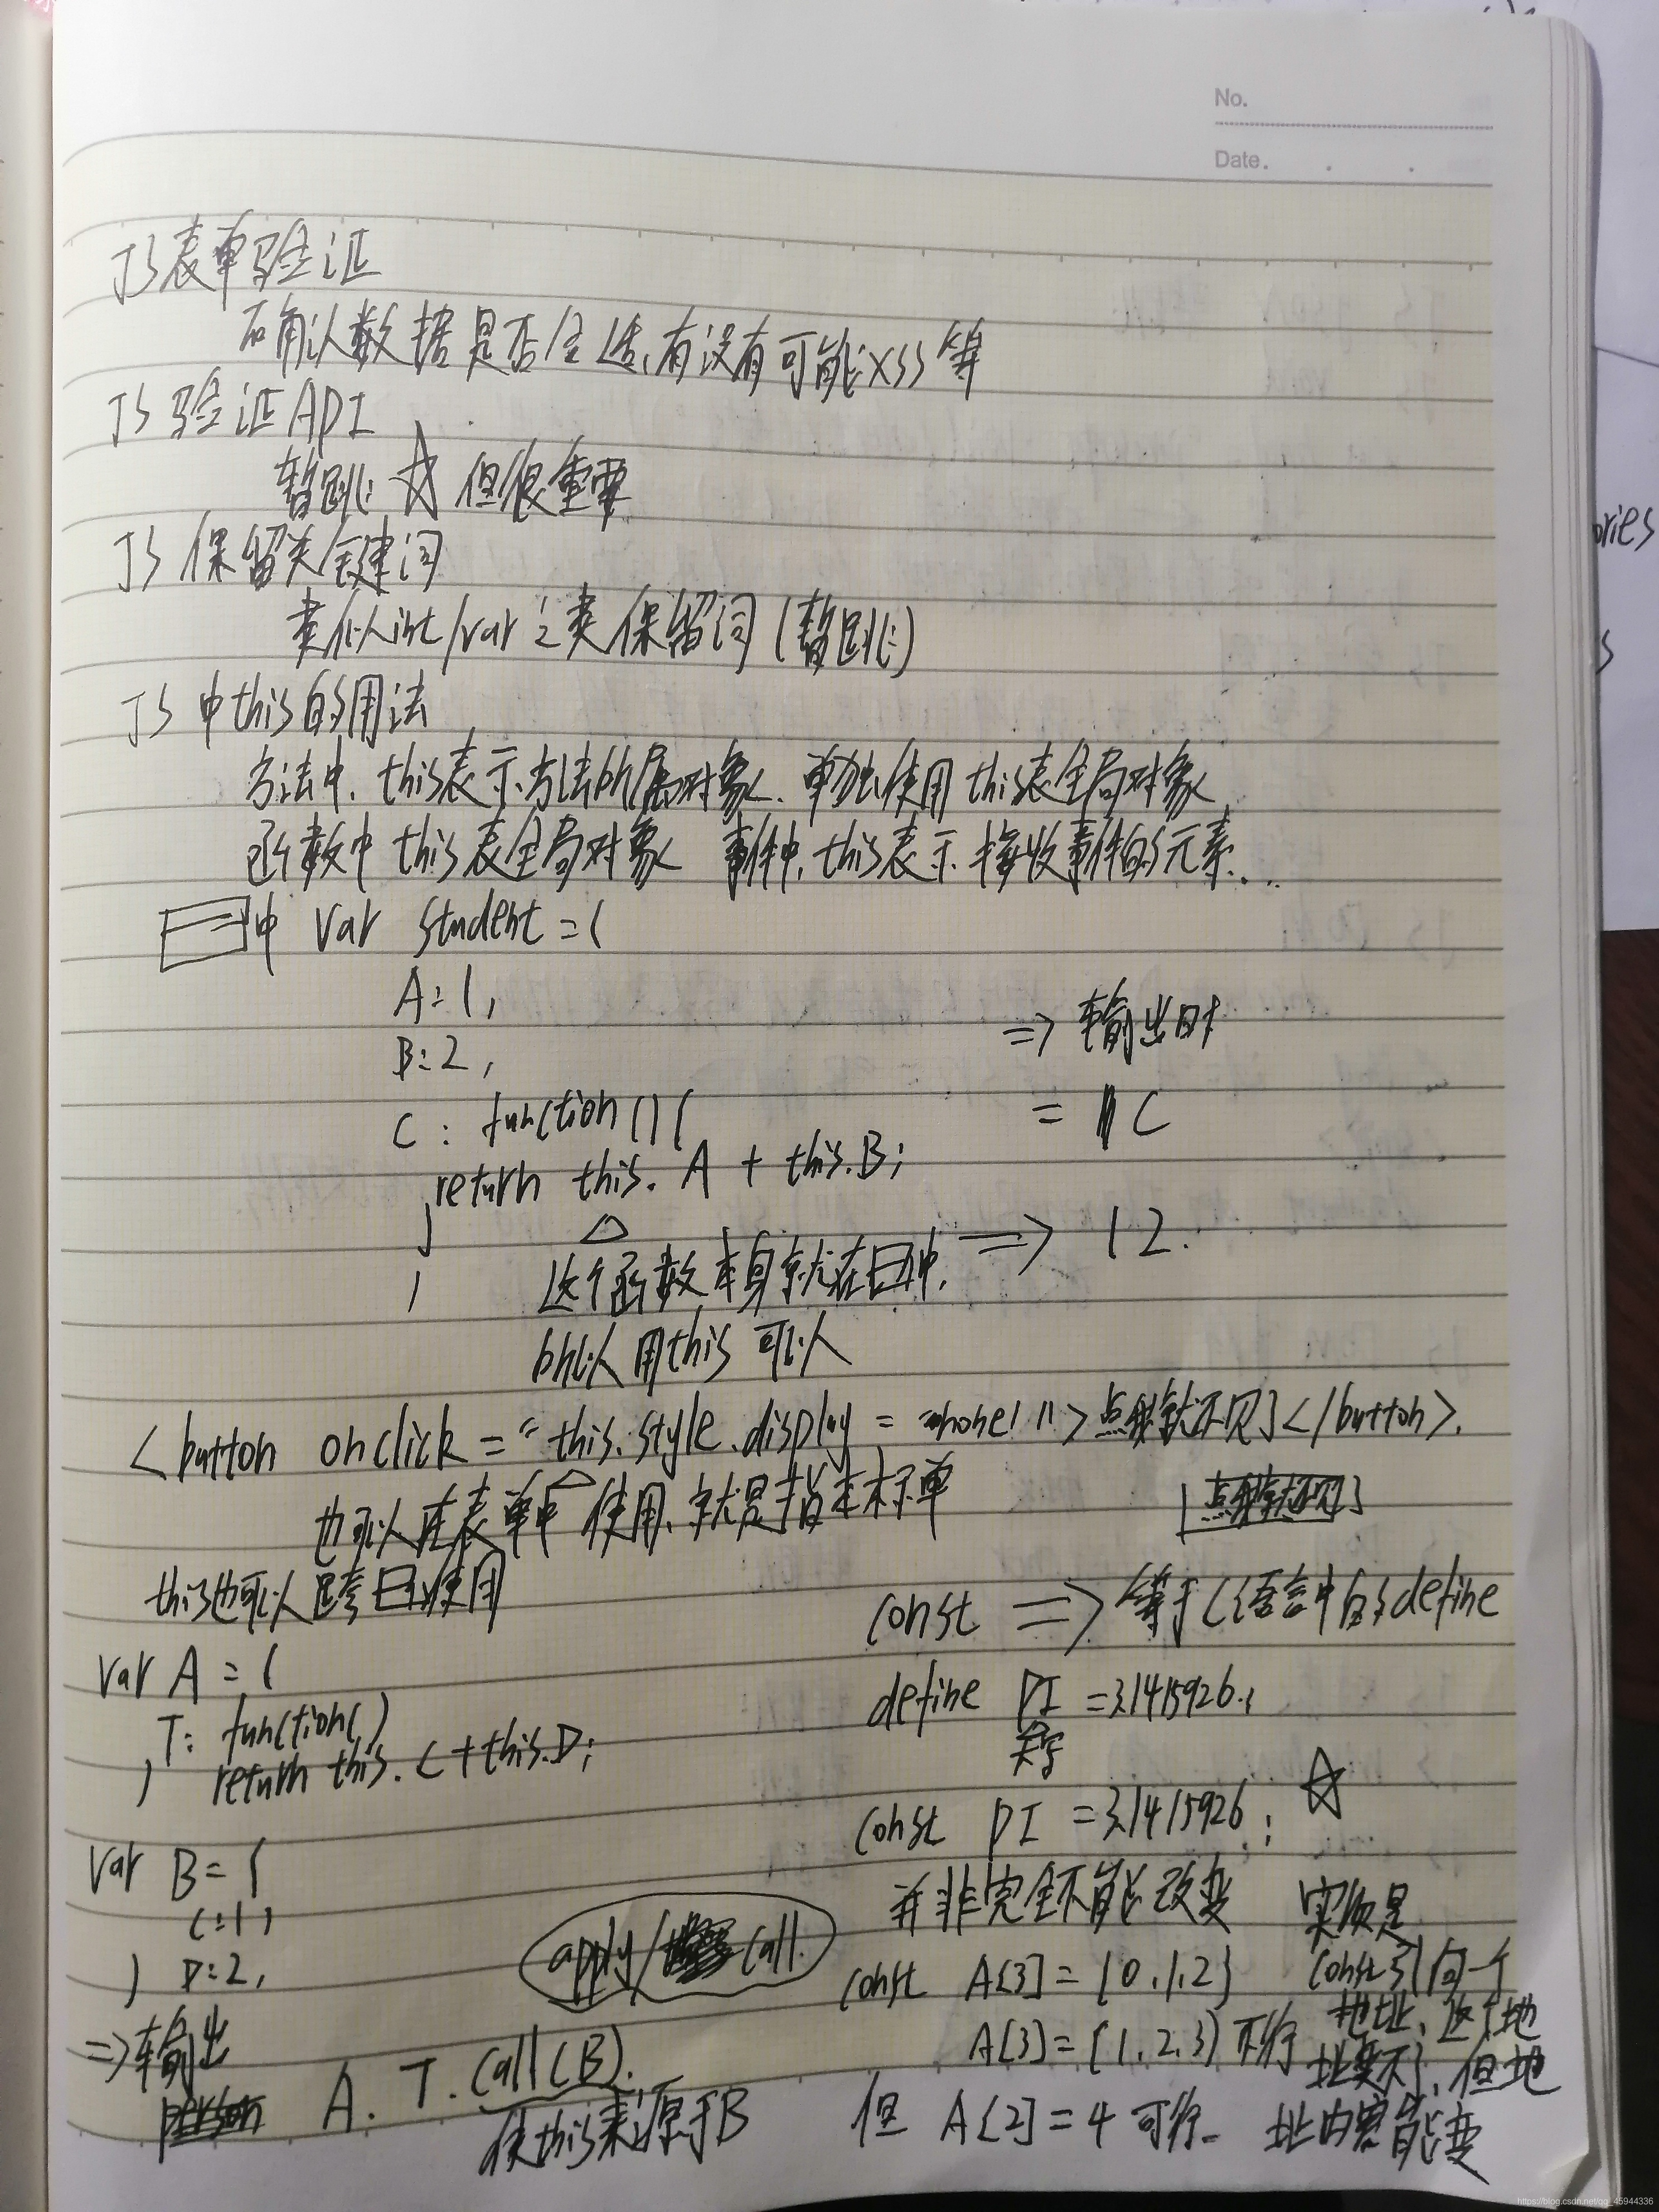 No.
Date.
JS表单验证
确认数据是否合适,有没有可能XSS等
JS验证API
暂跳 ☆ 但很重要
JS 保留关键词
类似int/var之类保留词(暂跳)
JS 中this的用法
方法中,this表示方法所属对象、单独使用this表全局对象
函数中this表全局对象 事件中,this表示接收事件的元素...
中 var student={
A:1,
B:2,
C: function(){
return this.A + this.B;
}
}
⇒ 输出时
= C
这个函数本身就在中,
所以用this可以
⇒ 12.
<button onclick="this.style.display='none'">点我就不见了</button>.
也可以在表单中使用,就是指本标单
点我就不见了
this也可以跨使用
var A={
T: function()
return this.C+this.D;
}
var B={
C:1,
D:2,
}
⇒输出
A.T.call(B).
使this来源于B
apply/call.
const ⇒等于C语言中的define
define PI=3.1415926;
const PI=3.1415926; ☆
并非完全不能改变
const A[3]={0,1,2}
A[3]={1,2,3}不行
但 A[2]=4可行.
实质是
const引向一个
地址,这个地
址变不了,但地
址内容能变
ories
s
https://blog.csdn.net/qq_45944336